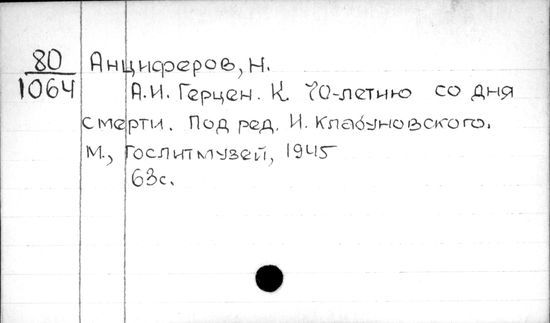 80
1064
Анциферов, Н.
А.И. Герцен. К 70-летию со дня
смерти. Под ред. И. Клабуновского.
М., Гослитмузей, 1945
63с.